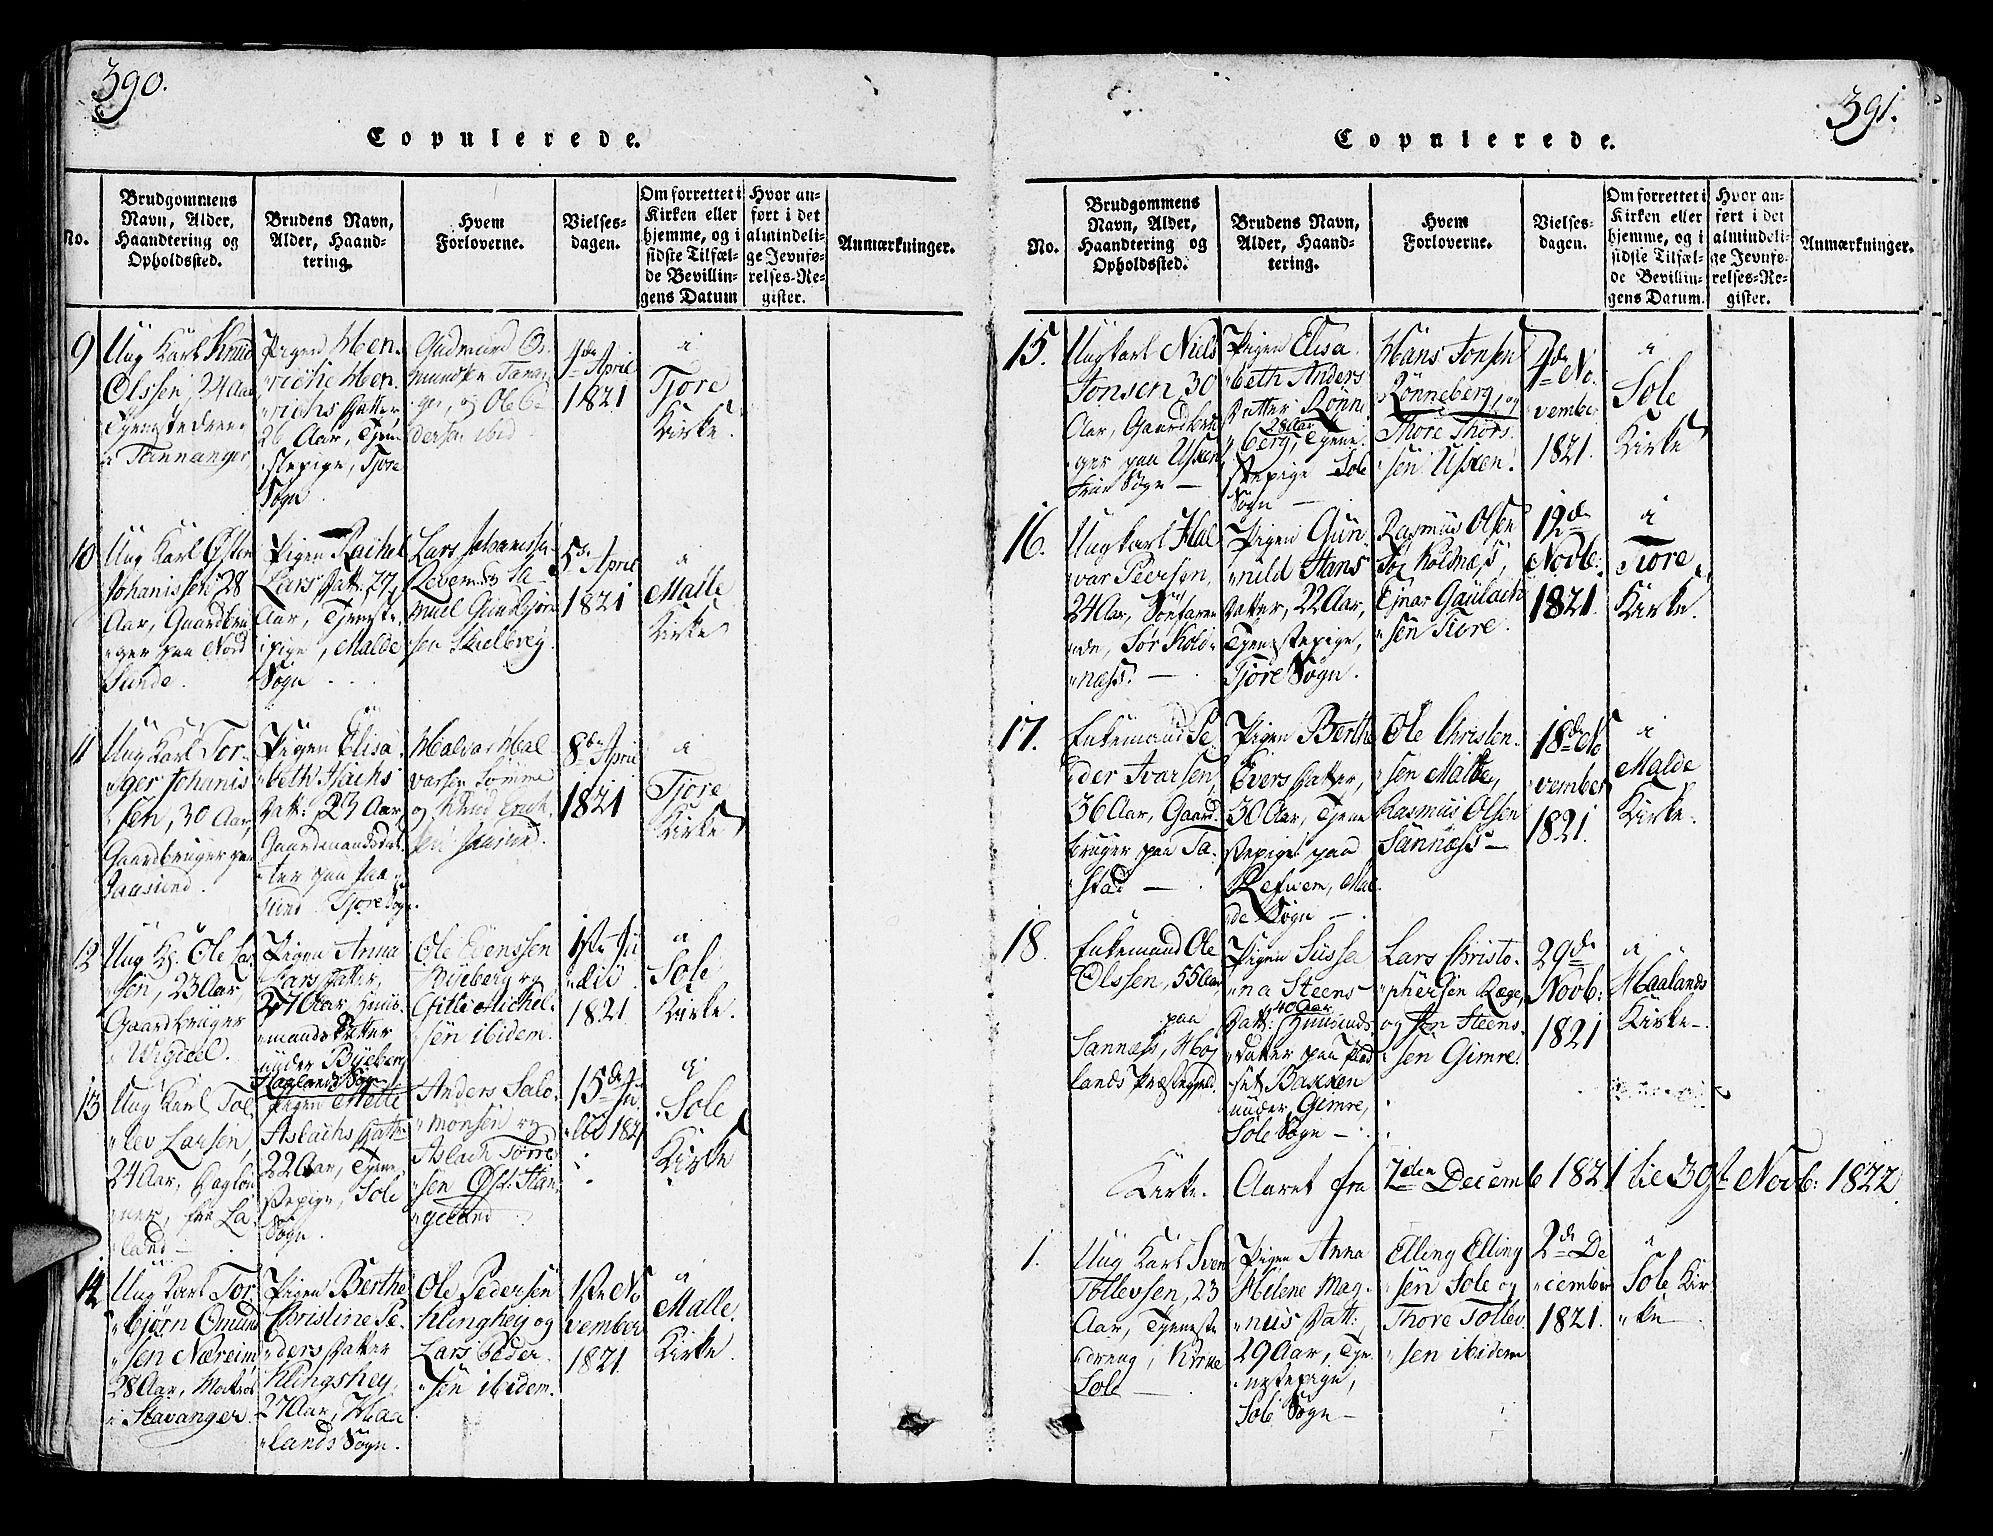 390.
Copulerede.
No.
Brudgommens
Navn, Alder,
Haandtering og
Opholdssted.
Brudens Navn,
Alder, Haand-
tering.
Hvem
Forloverne.
Vielses-
dagen.
Om forrettet i
Kirken eller
hjemme, og i
sidste Tilfæl-
de Bevillin-
gens Datum
Hvor an-
ført i det
almindeli-
ge Jevnfø-
relses-Re-
gister.
Anmærkninger.
9
Ung Karl Knud
Olssen, 24 Aar
Tjenestedreng
i
Pigen Hen-
riche Hen-
richs Datter
26 Aar, Tjene-
stepige, Tjore
Sogn.
Gudmund Os-
mundsen
og Ole
ibid
1de April
1821
i
Tjore
Kirke.
10
Ung Karl Østen
Johanissen 28
Aar, Gaardbru-
ger paa Nord
Sunde.
Pigen Rachel
Lars Datt. 27
Aar, Tjeneste-
pige, Malde
Sogn
Lars Johannissen
Revem og Sa-
muel Gunbjørn-
sen
5te April
1821
i
Malle
Kirke
11
Ung Karl Tor-
ger Johanis
sen, 30 Aar,
Gaardbruger paa
Jaasund.
Pigen Elisa-
beth Isachs
Datt: 23 Aar,
Gaardmandsdat-
ter paa Jaa-
sund Tjore Sogn.
Halvar Hal
varsen Sømme
og Knud Erich
sen Jaasund.
8de April
1821
i
Tjore
Kirke
12
Ung K: Ole Lar
sen, 23 Aar,
Gaardbruger
Wigdel.
Pigen Anna
Lars Datter,
27 Aar, Huus-
mands Datter
under Byeberg
Haalands Sogn
Ole Evenssen
Byeberg og
Gitle Michel-
sen ibidem.
1ste Ju
lii
1821
i
Sole
Kirke.
13
Ung Karl Tol
lev Larsen,
24 Aar, Dagløn
ner, fra La-
land
Pigen Mette
Aslachs Datt:
22 Aar, Tjene-
stepige, Sole
Sogn.
Anders Salo-
monsen og
Aslach Torre
sen Øst: Stan-
geland
15de Ju-
lii 1821
i
Sole
Kirke
14
Ung Karl Tor-
bjørn Omund
sen Næreim
28 Aar, Matros
i Stavanger.
Pigen Berthe
Christine Pe-
ders Datter
Klingshey,
27 Aar, Haa
lands Sogn.
Ole Pedersen
Klinghey og
Lars Peder-
sen ibidem.
1ste No
vember
1821
i
Malle
Kirke.
391.
Copulerede.
No.
Brudgommens
Navn, Alder,
Haandtering og
Opholdssted.
Brudens Navn,
Alder, Haand-
tering.
Hvem
Forloverne.
Vielses-
dagen.
Om forrettet i
Kirken eller
hjemme, og i
sidste Tilfæl-
de Bevillin-
gens Datum.
Hvor an-
ført i det
almindeli-
ge Jevnfø-
relses-Re-
gister.
Anmærkninger.
15.
Ung karl Niels
Jonsen 30
Aar, Gaardbru
ger paa Usken
Frue Sogn —
Pigen Elisa-
beth Anders
Datter Rønne
28 Aar
berg, Tjene-
stepige Sole
Sogn —
Hans Jonsen
Rønneberg, og
Thore Thors-
sen Usken.
4de No-
vember
1821.
i
Sole
Kirke
16.
Ung karl Hal
var Peersen,
24 Aar,
de, Sør Kols-
næss. —
Pigen Gun-
nild Hans
Datter, 22 Aar,
Tjenestepige,
Tjore Sogn.
Rasmus Olsen
Sør Kolnæss,
Ejnar Gaulach
sen Tiore.
12de
Novb:
1821
i
Tiore
Kirke.
17.
Enkemand Pe
der Ivarsen,
36 Aar, Gaard-
bruger paa Ta-
stad —
Pigen Berthe
Evers Datter,
30 Aar, Tjene
stepige paa
Refwem, Mal-
de Sogn —
Ole Christen-
sen Malle,
Rasmus Olsen
Sannæss —
18de No
vember
1821.
i
Malde
Kirke.
18.
Enkemand Ole
Olssen, 55 Aar,
paa
Sannæss, Høj
lands Præstegjeld.
Pigen Susse
na Steens
40 Aar
Datt: Huusmds
Datter paa Plad
set Bakken
under Gimre,
Sole Sogn —
Lars Christo-
phersen Ræge,
og Jon Steens-
sen Gimre.
29de
Novb:
1821
i
Haalands
Kirke —
Kirke. Aaret fra 1den Decemb 1821 til 30te Novb: 1822.
1.
Ung Karl Sven
Tollevsen, 23
Aar, Tjeneste
dreng, Kirke
Sole —
Pigen Anna
Helene Mag-
nus Datt:,
29 Aar, Tje
nestepige,
Sole Sogn —
Elling Elling
sen Sole og
Thore Tollev
sen ibidem
2de De
cember
1821.
i
Sole Kir
ke —